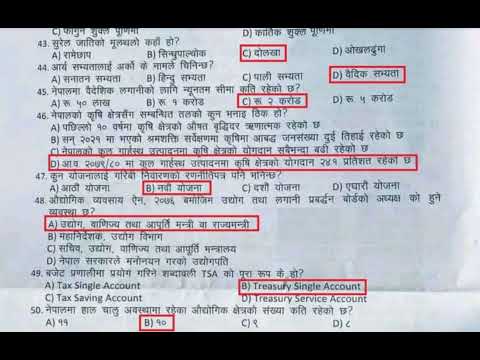 C) फागुन शुक्ल पूर्णिमा D) कार्तिक शुक्ल पूर्णिमा
43. सुरेल जातिको मूलथलो कहाँ हो?
A) रामेछाप B) सिन्धुपाल्चोक C) दोलखा D) ओखलढुंगा
44. आर्य सभ्यतालाई अर्को के मामले चिनिन्छ?
A) सनातन सभ्यता B) हिन्दु सभ्यता C) पाली सभ्यता D) वैदिक सभ्यता
45. नेपालमा वैदेशिक लगानीको लागि न्यूनतम सीमा कति रहेको छ?
A) रू ५० लाख B) रू १ करोड C) रू २ करोड D) रू ५ करोड
46. नेपालको कृषि क्षेत्रसँग सम्बन्धित तलको कुन भनाइ ठिक हो?
A) पछिल्लो १० वर्षमा कृषि क्षेत्रको औषत बृद्धिदर ऋणात्मक रहेको छ
B) सन् २०२१ मा भएको श्रमशक्ति सर्वेक्षणमा कृषिमा आबद्ध जनसंख्या दुई तिहाई रहेको छ
C) नेपालको कुल गार्हस्थ उत्पादनमा कृषि क्षेत्रको योगदान सबैभन्दा बढी रहेको छ
D) आ.व. २०७९/८० मा कुल गार्हस्थ उत्पादनमा कृषि क्षेत्रको योगदान २४.१ प्रतिशत रहेको छ
47. कुन योजनालाई गरिबी निवारणको रणनीतिपत्र पनि भनिन्छ?
A) आठौं योजना B) नवौं योजना C) दशौं योजना D) एघारौं योजना
48. औद्योगिक व्यवसाय ऐन, २०७६ बमोजिम उद्योग तथा लगानी प्रबर्द्धन बोर्डको अध्यक्ष को हुने
व्यवस्था छ?
A) उद्योग, वाणिज्य तथा आपूर्ति मन्त्री वा राज्यमन्त्री
B) महानिर्देशक, उद्योग विभाग
C) सचिव, उद्योग, वाणिज्य तथा आपूर्ति मन्त्रालय
D) नेपाल सरकारले मनोनयन गरको उद्योगपति
49. बजेट प्रणालीमा प्रयोग गरिने शब्दावली TSA को पूरा रूप के हो?
A) Tax Single Account B) Treasury Single Account
C) Tax Saving Account D) Treasury Service Account
50. नेपालमा हाल चालु अवस्थामा रहेका औद्योगिक क्षेत्रको संख्या कति रहेको छ?
A) ११ B) १० C) ९ D) ८